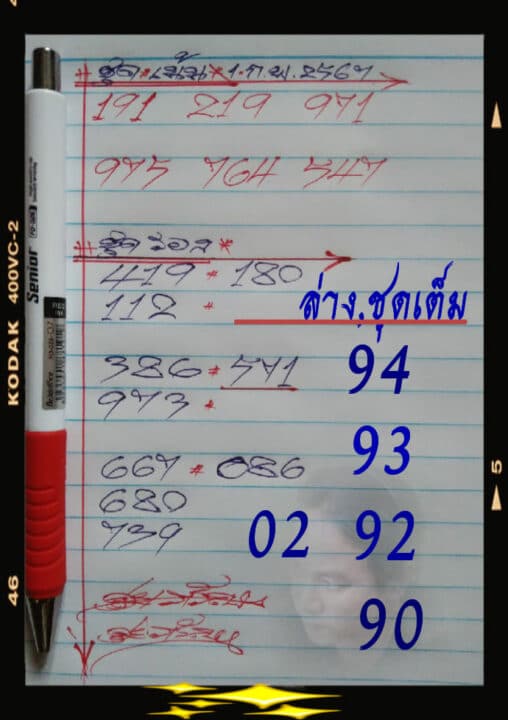 # ชุด * เน้น * 1.ก.พ.2567
191 219 971
975 764 547
# ชุด รอง *
419 * 180
112 *
ล่าง.ชุดเต็ม
386 * 571
94
973 *
93
667 * 086
680
02 92
739
90
KODAK 400VC-2
46
5
Senior